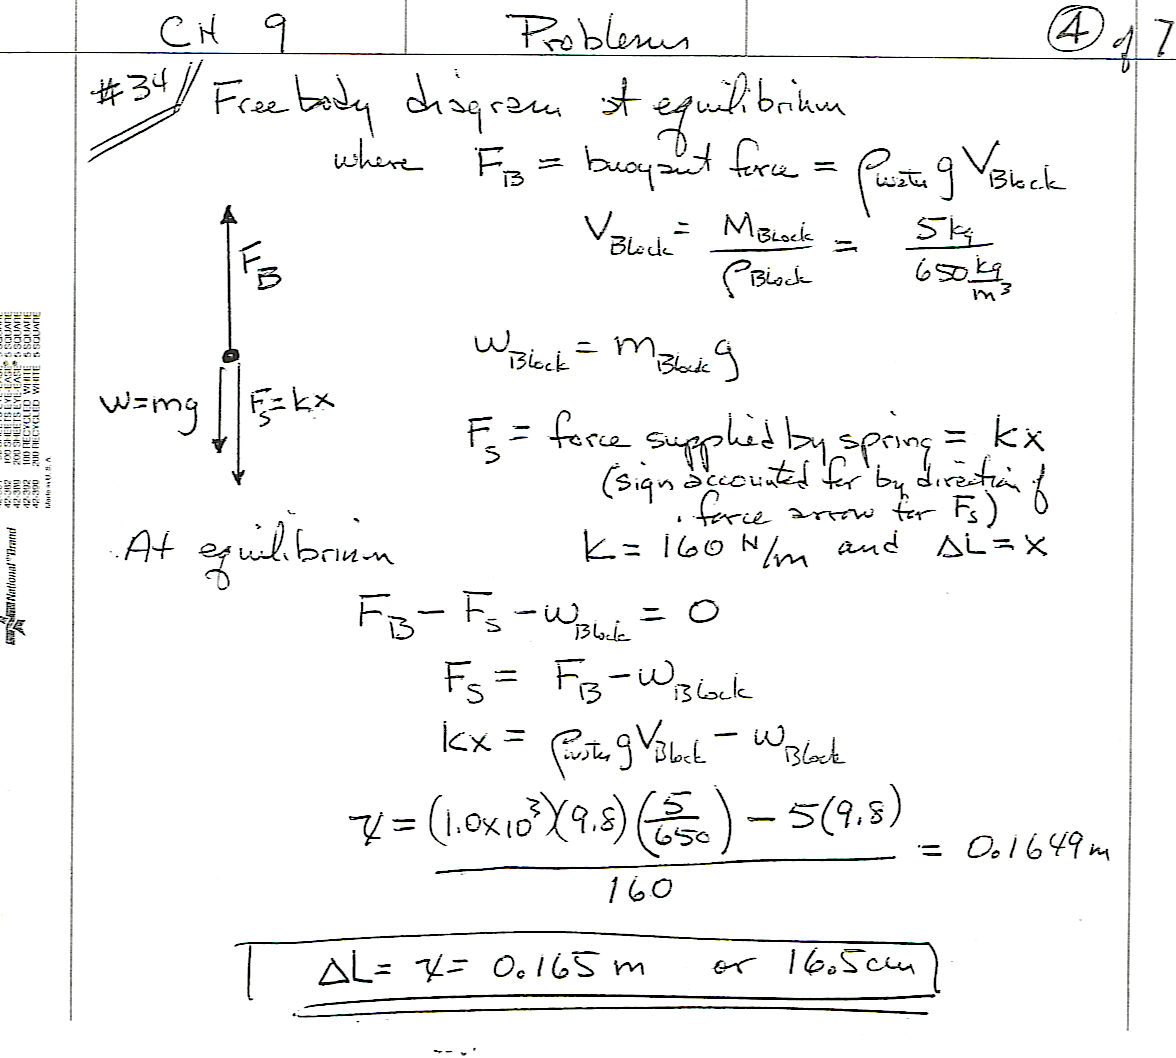 CH 9 Problems 4 of 7
#34 Free body diagram at equilibrium
where F_B = buoyant force = ρ_water g V_Block
V_Block = M_Block / ρ_Block = 5 kg / 650 kg/m³
F_B
w_Block = m_Block g
W=mg F_s=kx
F_s = force supplied by spring = kx
(sign accounted for by direction of
force arrow for F_s)
At equilibrium K = 160 N/m and ΔL = x
F_B - F_s - w_Block = 0
F_s = F_B - w_Block
kx = ρ_water g V_Block - w_Block
x = (1.0x10³)(9.8)(5/650) - 5(9.8) / 160 = 0.1649 m
ΔL = x = 0.165 m or 16.5 cm
42-382 100 SHEETS EYE-EASE® 5 SQUARE
42-389 200 SHEETS EYE-EASE® 5 SQUARE
42-392 100 RECYCLED WHITE 5 SQUARE
42-399 200 RECYCLED WHITE 5 SQUARE
Made in U.S.A.
National® Brand